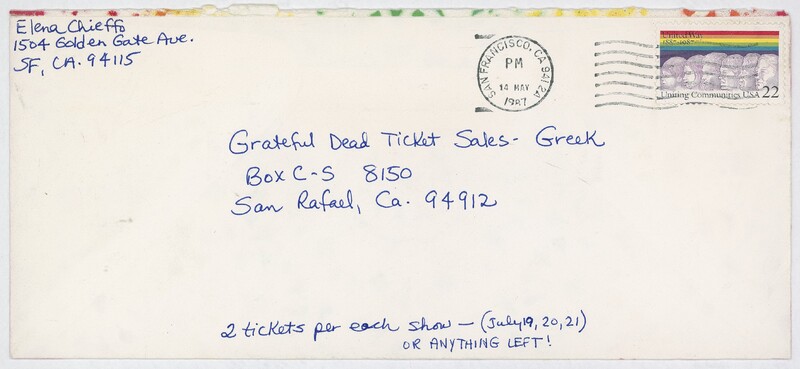 Elena Chieffo
1504 Golden Gate Ave.
SF, CA. 94115
SAN FRANCISCO, CA 941 2A
PM
14 MAY
1987
United Way
1887-1987
Uniting Communities USA 22
Grateful Dead Ticket Sales - Greek
Box C-S 8150
San Rafael, Ca. 94912
2 tickets per each show — (July 19, 20, 21)
OR ANYTHING LEFT!